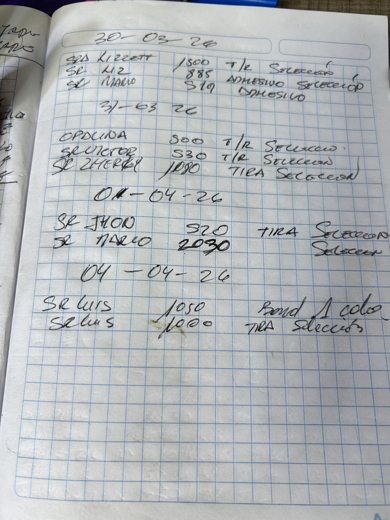 30-03-26
SRA LIZZETT 1500 T/R Selección
SR LIZ 885 ADHESIVO Selección
SR MARIO 519 ADHESIVO
31-03 26
OPALINA 500 T/R Selección
SR VICTOR 530 T/R Selección
SR 1080 TIRA Selección
01-04-26
SR JHON 520 TIRA Selección
SR MARIO 2030 Selección
04-04-26
SR LUIS 1050 Bond 1 color
SR LUIS 1000 TIRA Selección